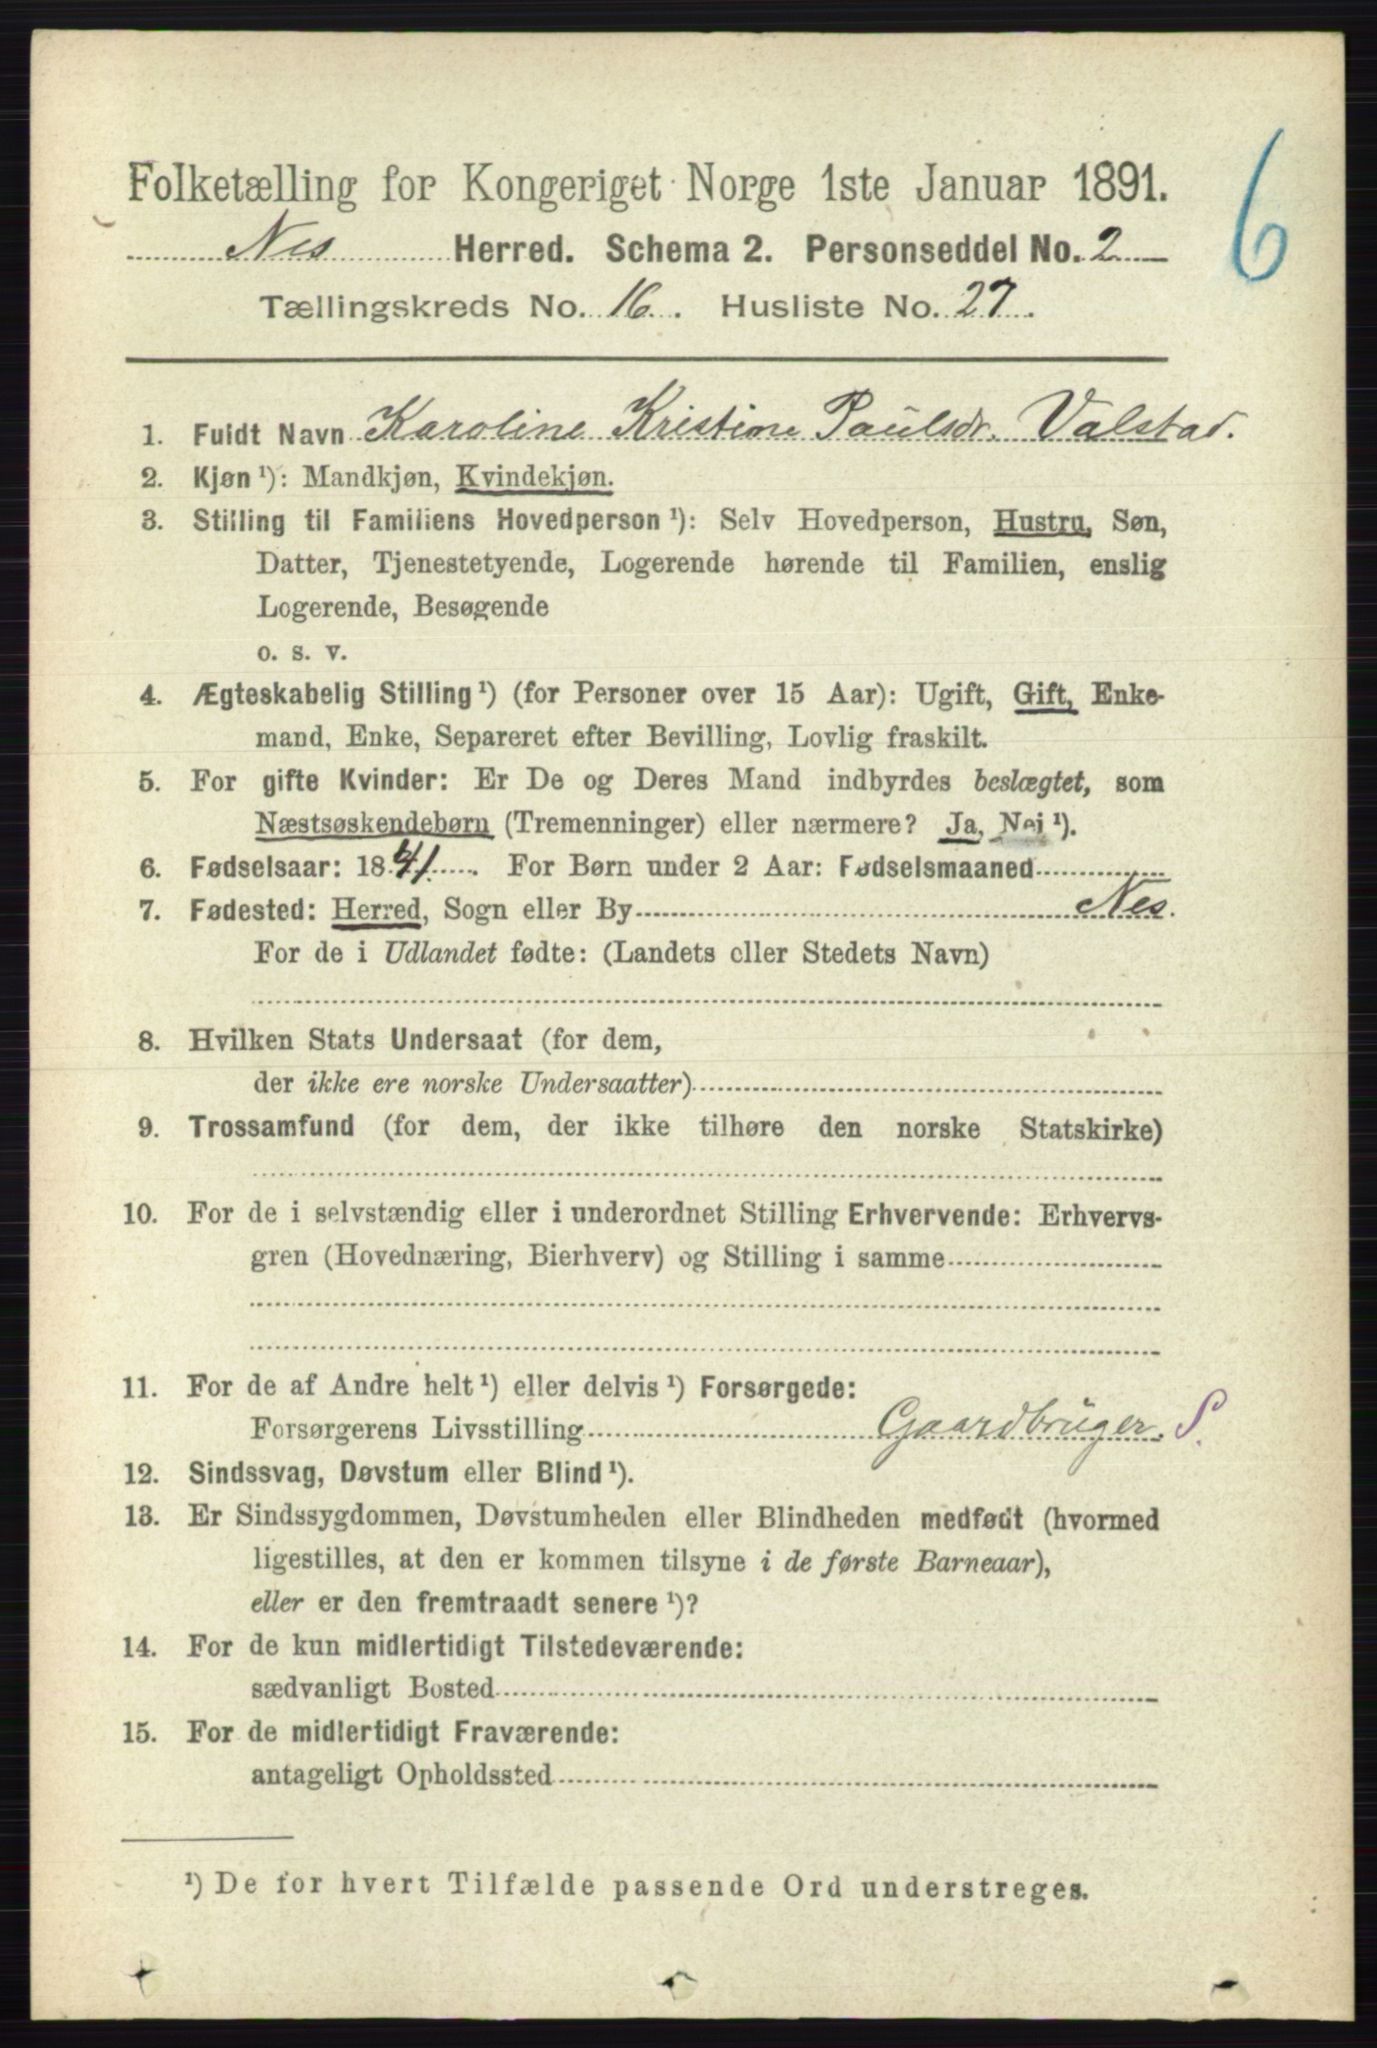 Folketælling for Kongeriget Norge 1ste Januar 1891.
6
Nes Herred. Schema 2. Personseddel No. 2
Tællingskreds No. 16. Husliste No. 27.
1. Fuldt Navn Karoline Kristine Paulsdr. Valstad.
2. Kjøn ¹): Mandkjøn, Kvindekjøn.
3. Stilling til Familiens Hovedperson ¹): Selv Hovedperson, Hustru, Søn,
Datter, Tjenestetyende, Logerende hørende til Familien, enslig
Logerende, Besøgende
o. s. v.
4. Ægteskabelig Stilling ¹) (for Personer over 15 Aar): Ugift, Gift, Enke-
mand, Enke, Separeret efter Bevilling, Lovlig fraskilt.
5. For gifte Kvinder: Er De og Deres Mand indbyrdes beslægtet, som
Næstsøskendebørn (Tremenninger) eller nærmere? Ja, Nei ¹).
6. Fødselsaar: 1841. For Børn under 2 Aar: Fødselsmaaned
7. Fødested: Herred, Sogn eller By Nes.
For de i Udlandet fødte: (Landets eller Stedets Navn)
8. Hvilken Stats Undersaat (for dem,
der ikke ere norske Undersaatter)
9. Trossamfund (for dem, der ikke tilhøre den norske Statskirke)
10. For de i selvstændig eller i underordnet Stilling Erhvervende: Erhvervs-
gren (Hovednæring, Bierhverv) og Stilling i samme
11. For de af Andre helt ¹) eller delvis ¹) Forsørgede:
Forsørgerens Livsstilling Gaardbruger. S.
12. Sindssvag, Døvstum eller Blind ¹).
13. Er Sindssygdommen, Døvstumheden eller Blindheden medfødt (hvormed
ligestilles, at den er kommen tilsyne i de første Barneaar),
eller er den fremtraadt senere ¹)?
14. For de kun midlertidigt Tilstedeværende:
sædvanligt Bosted
15. For de midlertidigt Fraværende:
antageligt Opholdssted
¹) De for hvert Tilfælde passende Ord understreges.